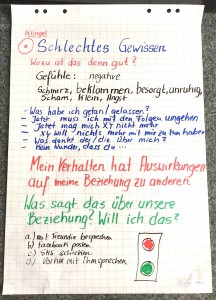 Klingel
Schlechtes Gewissen
Wozu ist das denn gut?
Gefühle: negative
Schmerz, beklommen, besorgt, unruhig,
Scham, Klein, Angst
- Was habe ich getan / gelassen?
- Jetzt muss ich mit den Folgen umgehen
- Jetzt mag mich XY nicht mehr
- XY will nichts mehr mit mir zu tun haben
- Was denkt der/die über mich?
- Kein Wunder, dass du ...
Mein Verhalten hat Auswirkungen
auf meine Beziehung zu anderen.
Was sagt das über unsere
Beziehung? Will ich das?
a.) mit Freundin besprechen
b) Facebook posten
c) SMS schicken
d) Vorher mit Ihm sprechen